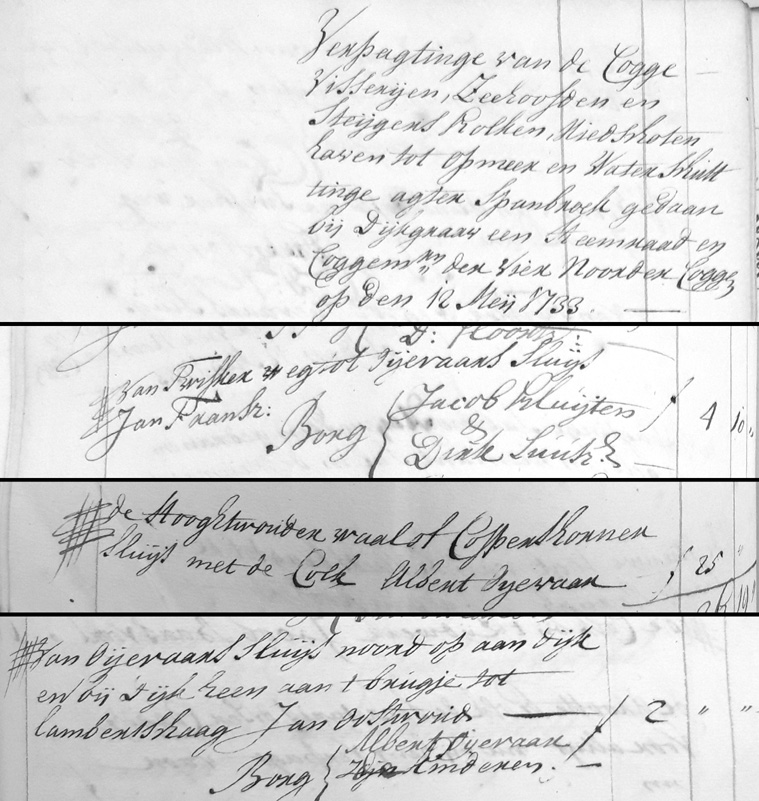 Verpagtinge van de Cogge
Visserijen, Zeehoofden en
Steijgers Kolken, Riedschoten
haven tot Opmeer en Waterschutt
tinge agter Spanbroek gedaan
bij Dijkgraav een Heemraad en
Coggemrs. der Vier Noorder Cogge,
op den 12 Meij 1733.
D:
Van Twisker weg tot Dijevaars Sluijs
Jan Fransz: Borg Jacob Kluijten / 4 10 "
& Dirk
de Hooghtwouder waal of Cossenhorner
Sluijs met de Colk Albert Oyevaar / 25 "
Van Oijevaars Sluijs noord op aan dijk
en bij Dijk heen aan t brugje tot
Lambertshaag Jan Oostwoud / 2 " "
Borg Albert Oyevaar
kinderen.